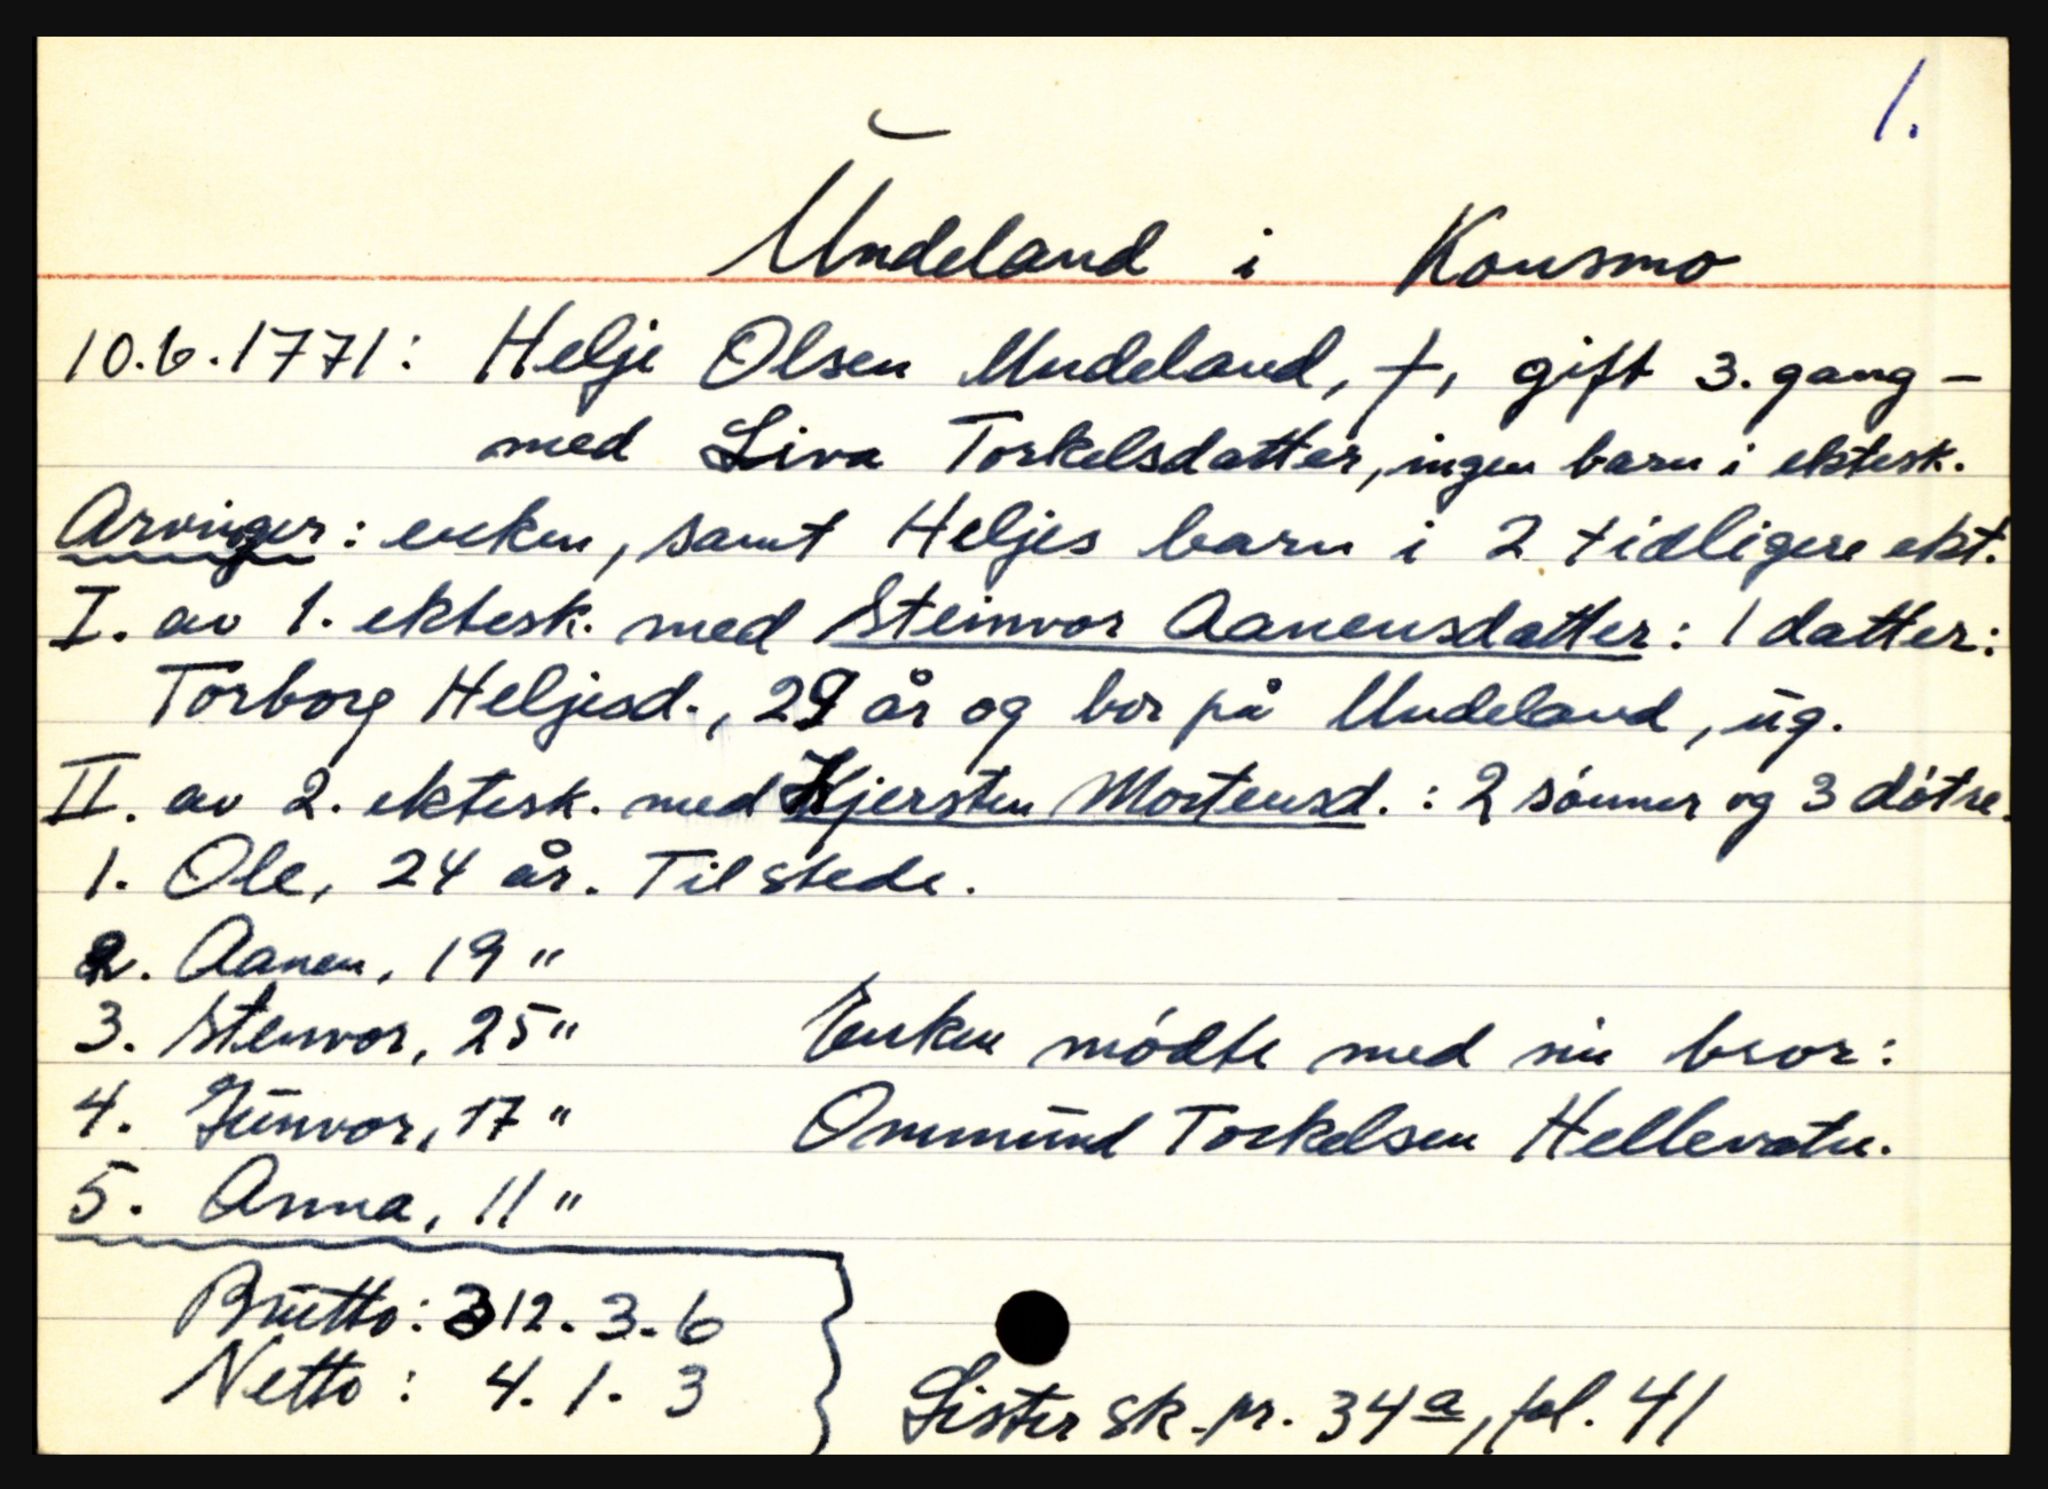 1.
Undeland i Konsmo
10.6.1771: Helje Olsen Undeland, †, gift 3. gang -
med Liva Torkelsdatter, ingen barn i ektesk.
Arvinger: enken, samt Heljes barn i 2 tidligere ekt.
I. av 1. ektesk. med Steinvor Aanensdatter: 1 datter:
Torborg Heljesd., 29 år og bor på Undeland, ug.
II. av 2. ektesk. med Kjersten Mortensd.: 2 sønner og 3 døtre.
1. Ole, 24 år. Tilstede.
2. Aanen, 19 "
3. Stenvor, 25 "
Enken mødte med sin bror:
4. Gunvor, 17 "
Ommund Torkelsen Hellevatn.
5. Anna, 11 "
Brutto: 312.3.6
Netto: 4.1.3
Lister sk.pr. 34a, fol. 41